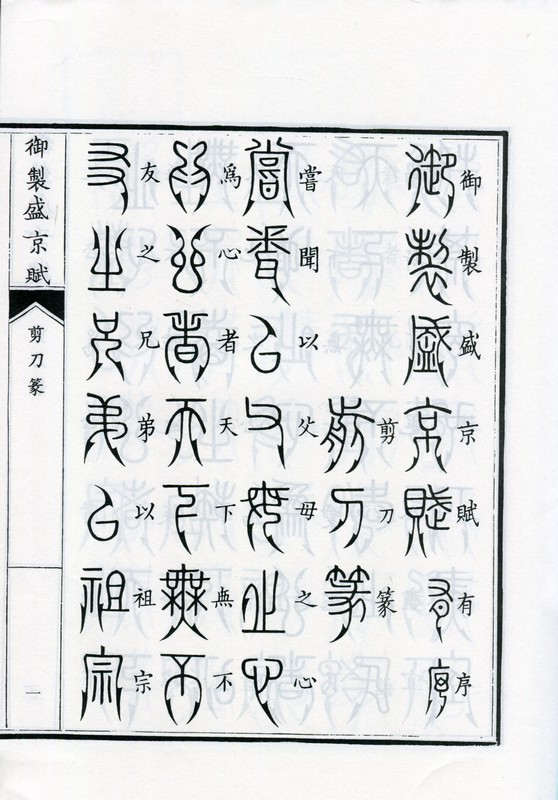 御製盛京賦有序
剪刀篆
嘗聞以父母之心
爲心者天下無不
友之兄弟以祖宗
御製盛京賦
剪刀篆
一